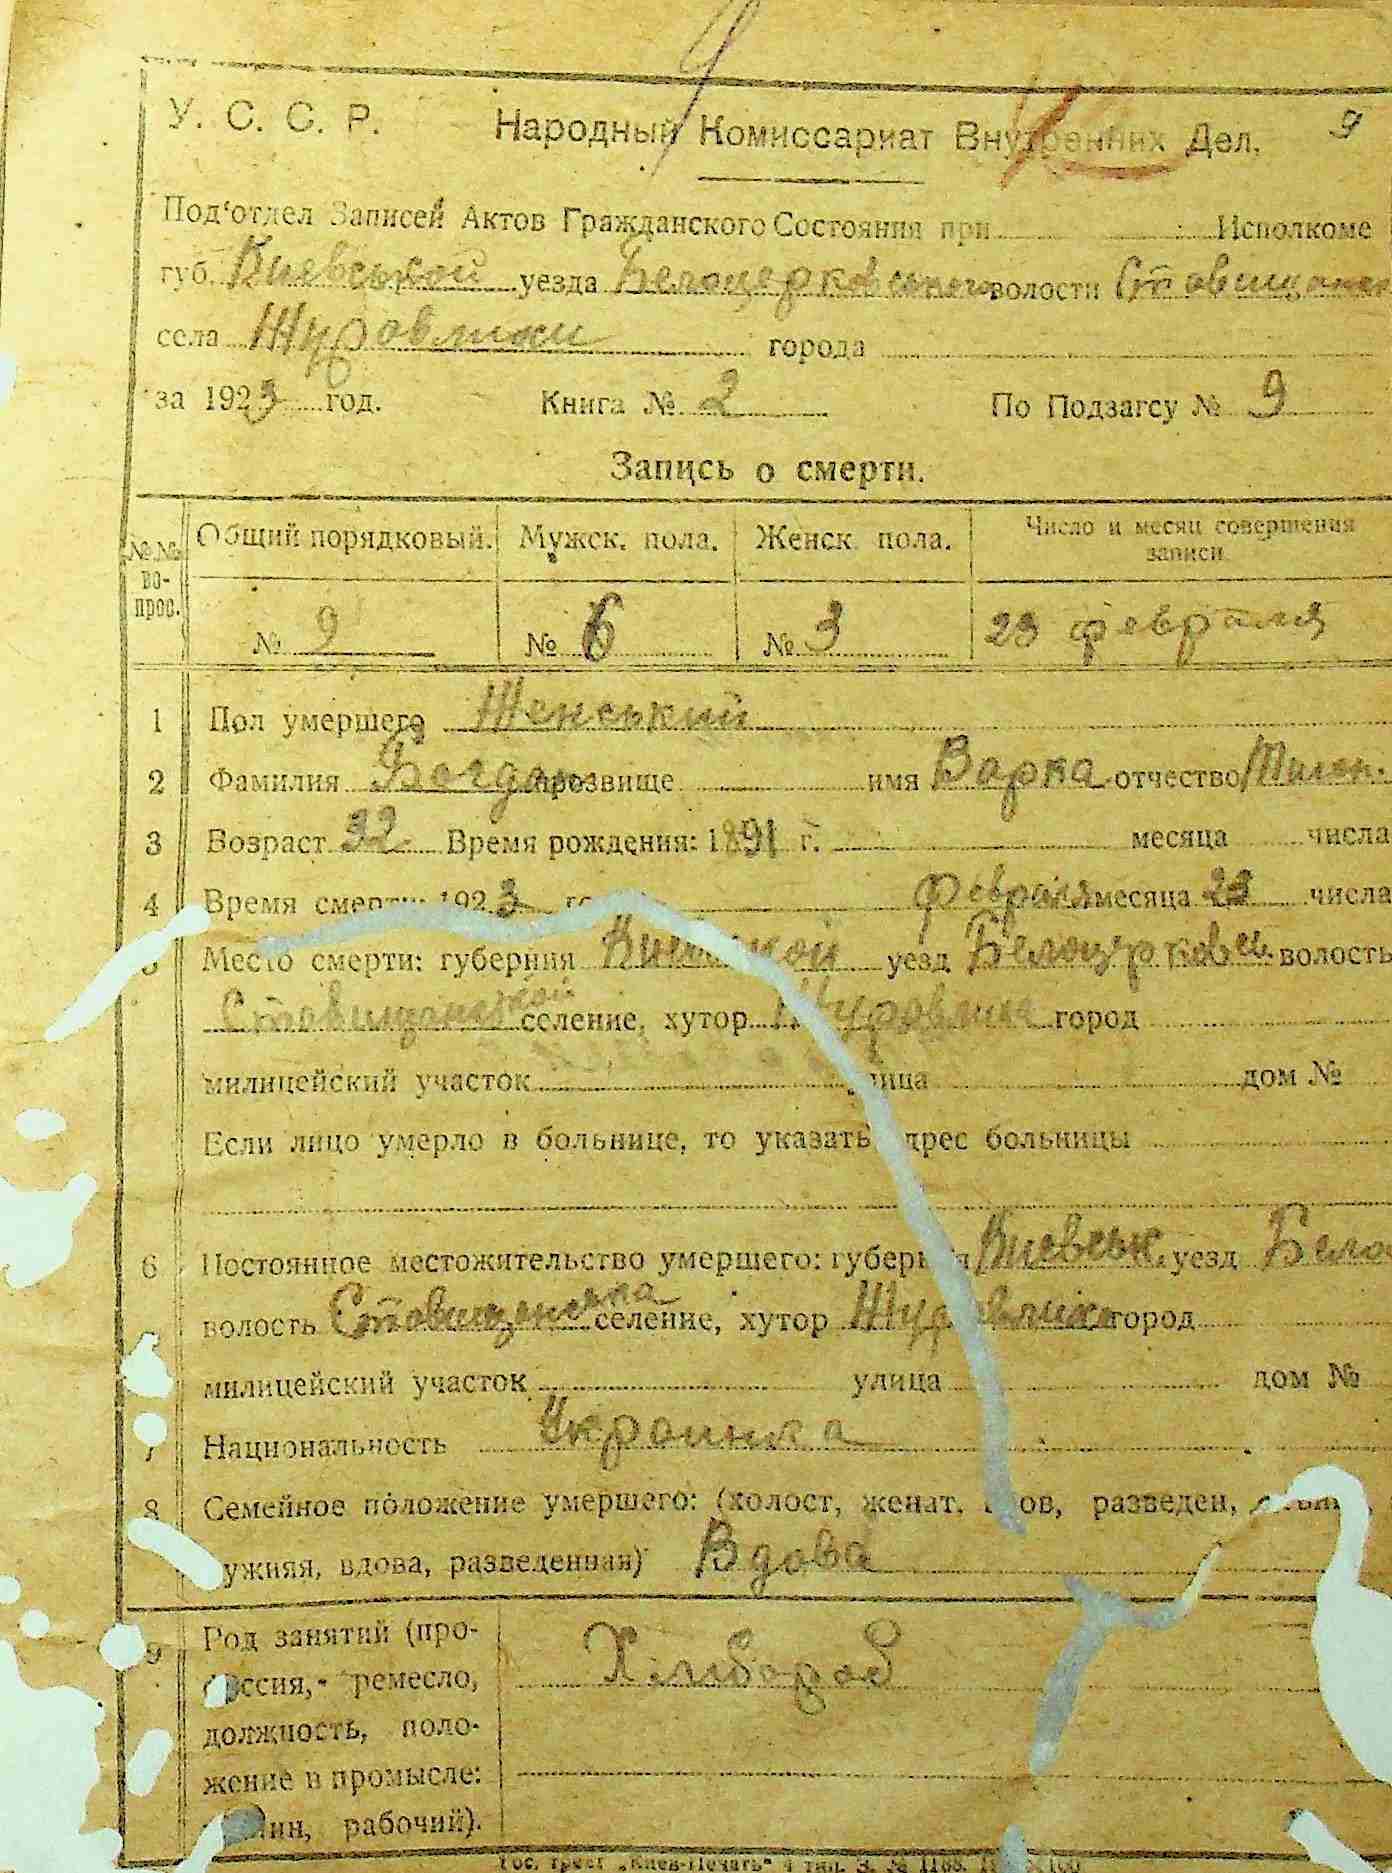 9
У. С. С. Р. Народный Комиссариат Внутренних Дел. 9
Под'отдел Записей Актов Гражданского Состояния при Исполкоме
губ. Киевськой уезда Белоцерковського волости Ставищанск
села Журовлихи города
за 1923 год. Книга № 2 По Подзагсу № 9
Запись о смерти.
№№ во- прос. Общий порядковый. Мужск. пола. Женск. пола. Число и месяц совершения записи
№ 9 № 6 № 3 23 февраля
1 Пол умершего Женський
2 Фамилия Богдан прозвище имя Варка отчество
3 Возраст 32 Время рождения: 1891 г. месяца числа
4 Время смерти: 1923 го февраля месяца числа
5 Место смерти: губерния Киевськой уезд Белоцерковс. волость
Ставищанской селение, хутор Журовлиха город
милицейский участок улица дом №
Если лицо умерло в больнице, то указать адрес больницы
6 Постоянное местожительство умершего: губерния Киевськ. уезд Бело
волость Ставищенська селение, хутор Журовлиха город
милицейский участок улица дом №
7 Национальность Украинка
8 Семейное положение умершего: (холост, женат, вдов, разведен,
ужняя, вдова, разведенная) Вдова
9 Род занятий (про-
фессия, ремесло, Хлибороб
должность, поло-
жение в промысле:
рабочий).
Гос. трест „Киев-Печать"